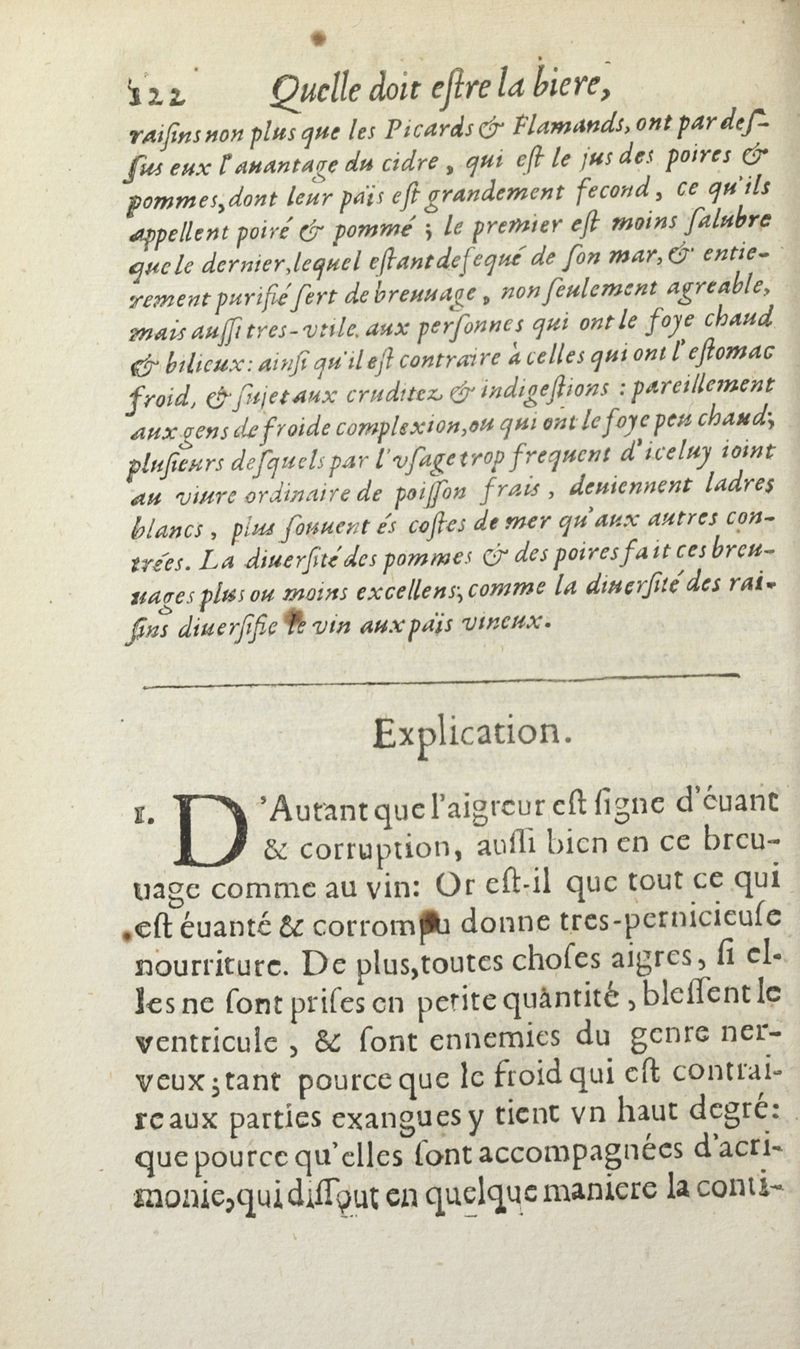 122 Quelle doit eſtre la biere,
raiſins non plus que les Picards & Flamands, ont par deſ-
ſus eux l'auantage du cidre, qui eſt le jus des poires &
pommes, dont leur païs eſt grandement fecond, ce qu'ils
appellent poiré & pommé; le premier eſt moins ſalubre
que le dernier, lequel eſtant defequé de ſon mar, & entie-
rement purifié ſert de breuuage, non ſeulement agreable,
mais auſſi tres-vtile. aux perſonnes qui ont le foye chaud
& bilieux: ainſi qu'il eſt contraire à celles qui ont l'eſtomac
froid, & ſujet aux cruditez & indigeſtions : pareillement
aux gens de froide complexion, ou qui ont le foye peu chaud;
pluſieurs deſquels par l'vſage trop frequent d'iceluy ioint
au viure ordinaire de poiſſon frais, deuiennent ladres
blancs, plus ſouuent és coſtes de mer qu'aux autres con-
trées. La diuerſité des pommes & des poires fait ces breu-
uages plus ou moins excellens, comme la diuerſité des rai-
ſins diuerſifie le vin aux païs vineux.
Explication.
1. D'Autant que l'aigreur eſt ſigne d'éuant
& corruption, auſſi bien en ce breu-
uage comme au vin: Or eſt-il que tout ce qui
eſt éuanté & corrompu donne tres-pernicieuſe
nourriture. De plus, toutes choſes aigres, ſi el-
les ne ſont priſes en petite quàntité, bleſſent le
ventricule, & ſont ennemies du genre ner-
veux; tant pource que le froid qui eſt contrai-
re aux parties exangues y tient vn haut degré:
que pource qu'elles ſont accompagnées d'acri-
monie, qui diſſout en quelque maniere la conti-